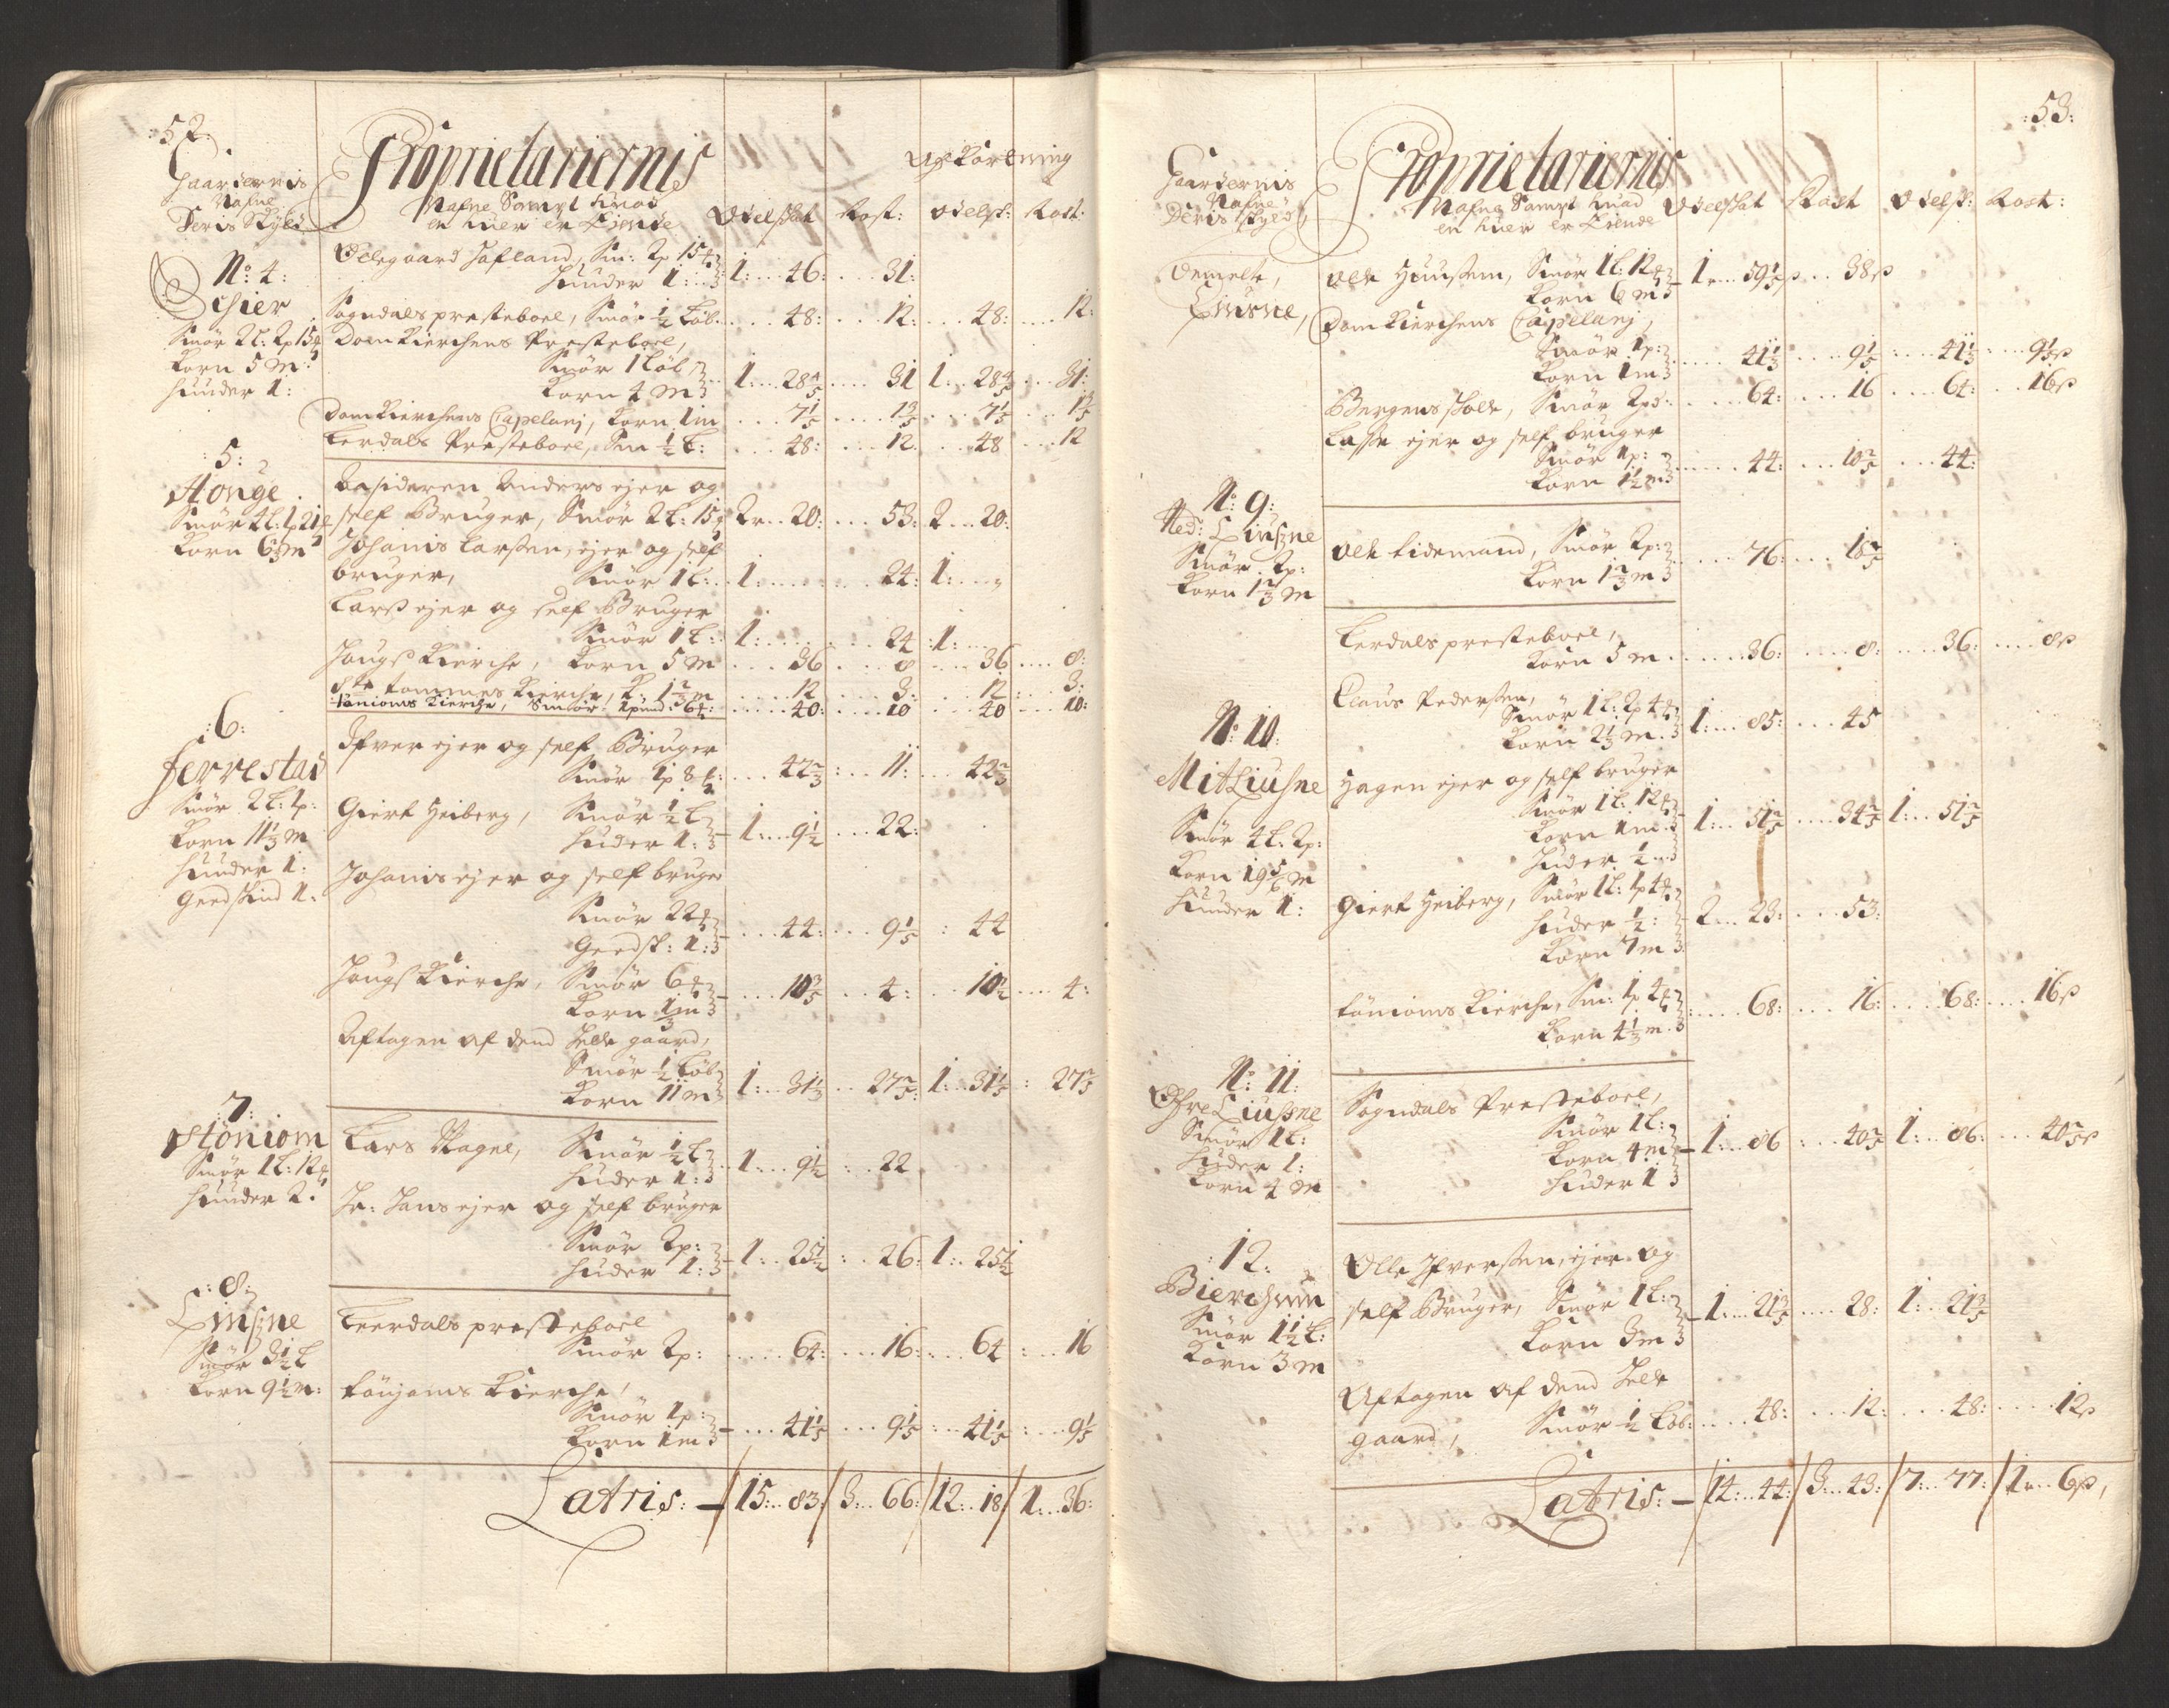 52.
Gaardernis Nafne Deris Skyld
Proprietariernis
Nafne Sampt huad en huer er Eiende
Odelskat Rost: Odelsk: Rost:
Afkortning
No: 4:
Smør 2 l: 2p 15
Korn 5 m:
Huuder 1:
Ødegaard Jafland, Sm: 2p 15
Huuder 1: 1: 46: 31:
Sogndals presteboel, Smør ½ Løb. 48: 12: 48: 12:
Domkierchens Presteboel,
Smør 1 Løb
Korn 4 m 1: 28 4/5 31 1: 28 4/5 31:
Domkierchens Capelani, Korn 1 m 7 1/5 1 3/5 7 1/5 1 3/5
Lerdals Presteboel, Sm ½ l: 48: 12. 48 12
5:
Stønge
Korn 6⅔ m
Anders ejer og
self Bruger, Smør 2 l: 15 2 20: 53: 2 20:
Johanis Larsen, ejer og self
bruger, Smør 1 l: 1: 24: 1:
Lars ejer og self Bruger
Smør 1 l: 1: 24 1:
Hougs Kierche, Korn 5 m 36 8 36 8:
Tommes Kierche, K: 1⅔ m 12 3: 12 3:
Tønioms Kierche, Smør 1 pund: 6 40: 10 40 10:
6:
Ferrestad
Smør 2 l: 1p:
Korn 11⅓ m
Huuder 1:
Geedskind 1:
Ifver ejer og self Bruger
Smør 1p 8 42⅔ 11: 42⅔
Giert Heiberg, Smør ½ l
Huder 1: 1: 9½ 22:
Johanis ejer og self bruger
Smør 22
Geedsk: 1: 44: 9 1/5 44
Hougs Kierche, Smør 6
Korn ⅓ m 10 4: 4:
Aftagen af dend Hele gaard,
Smør ½ Løb
Korn 11 m 1: 31⅓ 27 1: 31 27
7:
Støniom
Smør 1 l: 12
Huuder 2:
Lars Skagne, Smør ½ l
Huder 1: 1: 9½ 22
Hr: Jans ejer og self bruger
Smør 2p:
Huder 1: 1: 25½ 26: 1: 25½
8:
Liusne
Smør 3½ l
Korn 9½ m:
Leerdals presteboel
Smør 2p: 64: 16: 64 16
Tønjoms Kierche,
Smør 1p:
Korn 1 m 41 1/5 9 1/5 41 1/5 9 1/5
Latris: 15: 83: 3: 66: 12: 18 1: 36:
53:
Gaardernis Nafne Deris Skyld,
Proprietariernis
Nafne Sampt huad en huer er Eiende
Odelskat Rost Odelsk: Rost:
Bemelte,
Liusne,
Ole Hansen, Smør 1 l: 12
Korn 6 m 1 59 38 ß
Domkierchens Capelanj,
Smør 1p:
Korn 1 m 41⅓ 9 1/5 41⅓ 9 ß
Bergens skole, Smør 2pd: 64: 16 64: 16 ß
Lasse ejer og self bruger
Smør 1p:
Korn 1½ m 44: 10 44:
No: 9:
Ned: Liusne
Smør 2p:
Korn 1⅔ m
Ole Lidemand, Smør 2p:
Korn 1⅔ m 76: 18
Lerdals presteboel,
Korn 5 m 36: 8: 36: 8 ß
No 10:
Mit Liusne
Smør 4 l: 2p:
Korn 19 5/6 m
Huuder 1:
Claus Pedersen,
Smør 1 l: 2p 4
Korn 2⅓ m 1: 85: 45
Hagen ejer og self bruger
Smør 1 l: 12
Korn 1 m
Huder ½ 1: 51 34 1: 51
Giert Heiberg, Smør 1 l: 1p 4
Huder ½:
Korn 7 m 2 23: 53:
Tønioms Kierche, Sm: 1p 4
Korn 4⅓ m 68: 16: 68: 16 ß
No: 11:
Øfre Liusne
Smør 1 l:
Huder 1:
Korn 4 m
Sogndals Presteboel,
Smør 1 l:
Korn 4 m
Huder 1 1: 86 40 1: 86: 40 ß
12:
Bierchum
Smør 1½ l:
Korn 3 m
Olle Ifversen, ejer og
self Bruger, Smør 1 l:
Korn 3 m 1: 21 28: 1: 21
Aftagen af dend Hele
gaard, Smør ½ Løb: 48: 12: 48: 12 ß
Latris: 14: 44: 3: 43: 7: 77: 1: 6 ß,